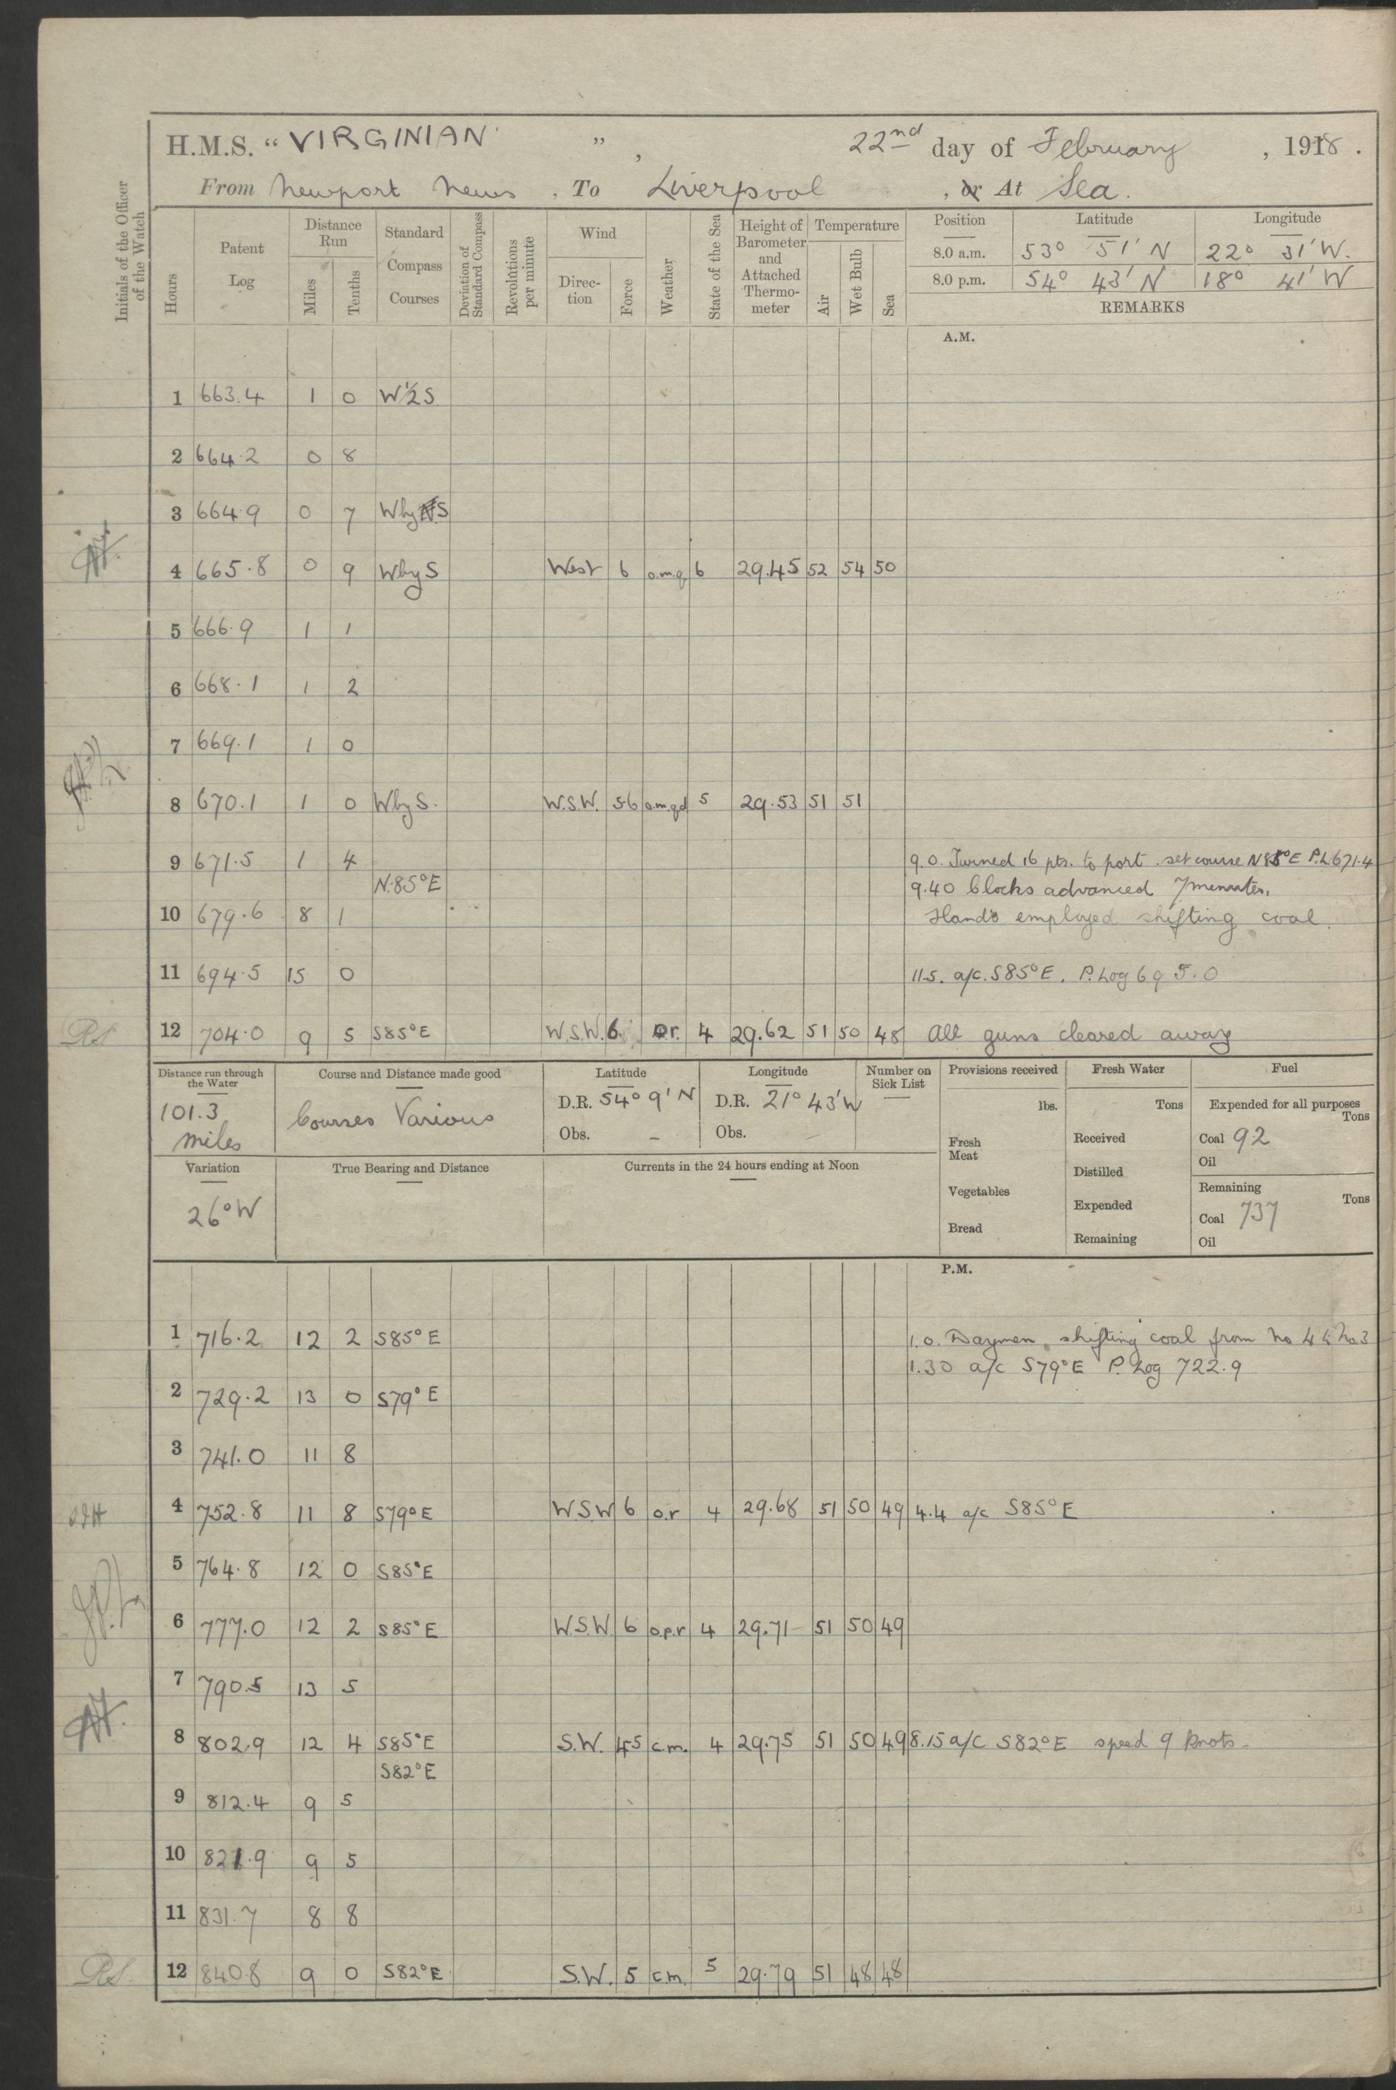 H.M.S. “ VIRGINIAN ” , 22nd day of February , 1918 .
From Newport News , To Liverpool , or At Sea.
Initials of the Officer of the Watch
Hours
Patent Log
Distance Run
Miles
Tenths
Standard Compass Courses
Deviation of Standard Compass
Revolutions per minute
Wind
Direction
Force
Weather
State of the Sea
Height of Barometer and Attached Thermometer
Temperature
Air
Wet Bulb
Sea
Position Latitude Longitude
8.0 a.m. 53° 51' N 22° 31' W.
8.0 p.m. 54° 43' N 18° 41' W
REMARKS
A.M.
1 663.4 1 0 W½S
2 664.2 0 8
3 664.9 0 7 WbyS
4 665.8 0 9 WbyS West 6 o.m.q 6 29.45 52 54 50
5 666.9 1 1
6 668.1 1 2
7 669.1 1 0
8 670.1 1 0 WbyS. W.S.W. 56 o.m.qd 5 29.53 51 51
9 671.5 1 4 9.0. Turned 16 pts. to port. set course N85°E P.L.671.4
N.85°E 9.40 Clocks advanced 7 minutes.
10 679.6 8 1 Hands employed shifting coal.
11 694.5 15 0 11.5. a/c. S85°E. P.Log 695.0
RS 12 704.0 9 5 S85°E W.S.W. 6 or. 4 29.62 51 50 48 All guns cleared away
Distance run through the Water
101.3 miles
Course and Distance made good
Courses Various
Latitude
D.R. 54° 9' N
Obs. –
Longitude
D.R. 21° 43' W
Obs.
Number on Sick List
Provisions received
lbs.
Fresh Meat
Vegetables
Bread
Fresh Water
Tons
Received
Distilled
Expended
Remaining
Fuel
Expended for all purposes
Tons
Coal 92
Oil
Remaining
Tons
Coal 737
Oil
Variation
26°W
True Bearing and Distance
Currents in the 24 hours ending at Noon
P.M.
1 716.2 12 2 S85°E 1.0. Daymen shifting coal from No 4 to No 3
1.30 a/c S79°E P. Log 722.9
2 729.2 13 0 S79°E
3 741.0 11 8
4 752.8 11 8 S79°E W.S.W 6 o.r 4 29.68 51 50 49 4.4 a/c S85°E
5 764.8 12 0 S85°E
6 777.0 12 2 S85°E W.S.W. 6 o.p.r 4 29.71 51 50 49
7 790.5 13 5
8 802.9 12 4 S85°E S.W. 45 c.m. 4 29.75 51 50 49 8.15 a/c S82°E speed 9 knots.
S82°E
9 812.4 9 5
10 821.9 9 5
11 831.7 8 8
RS. 12 840.8 9 0 S82°E S.W. 5 c.m. 5 29.79 51 48 48